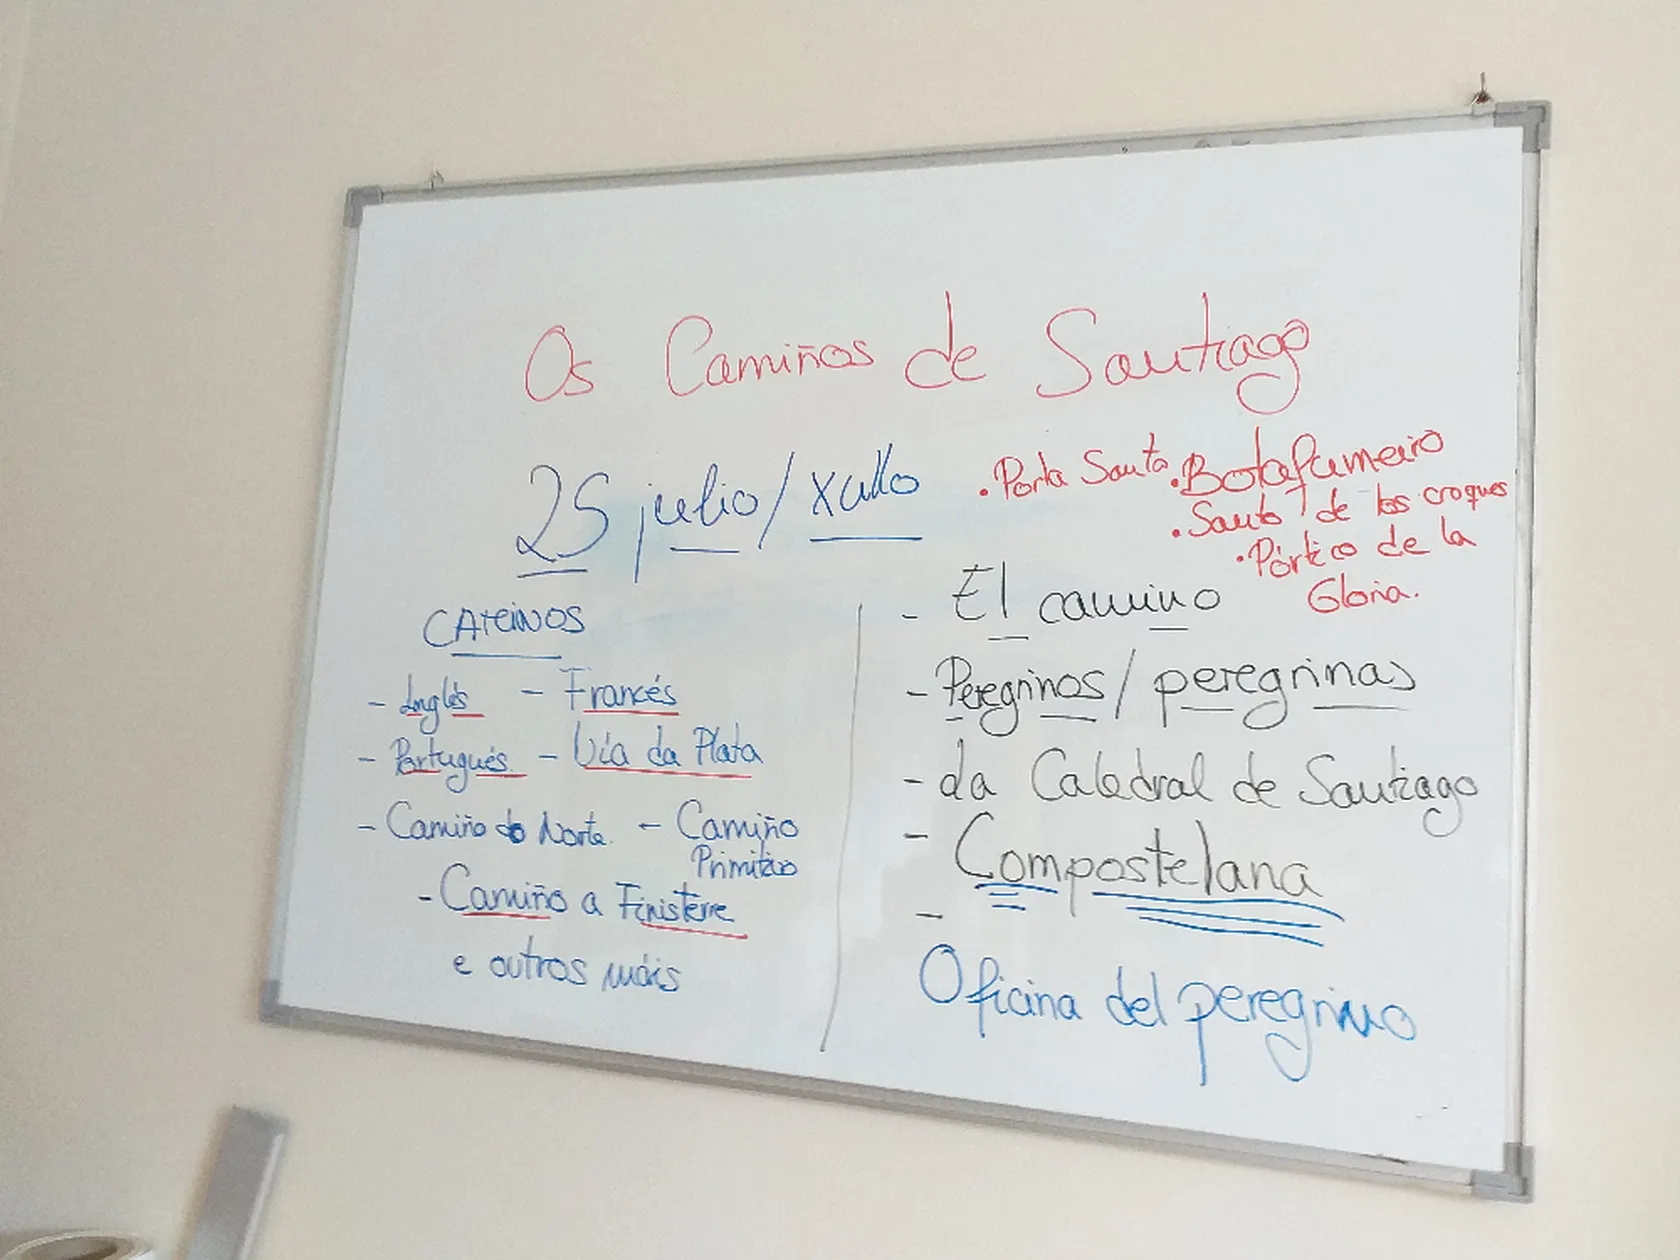 Os Camiños de Santiago
25 julio / xullo
. Porta Santa
. Botafumeiro
. Santo de los croques
. Pórtico de la
Gloria.
CAMIÑOS
- Inglés - Francés
- Portugués - Vía da Plata
- Camiño do Norte - Camiño
Primitivo
- Camiño a Finisterre
e outros máis
- El camino
- Peregrinos / peregrinas
- da Catedral de Santiago
- Compostelana
-
Oficina del peregrino